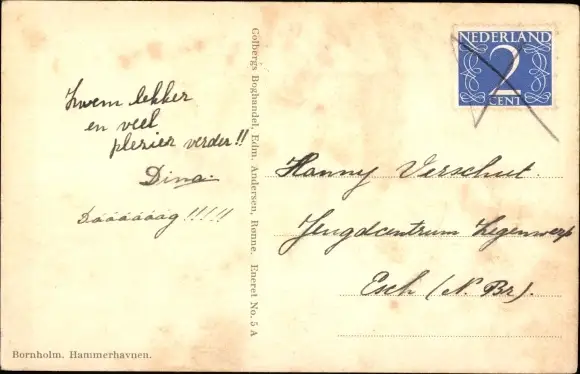 Zwem lekker
en veel
plezier verder!!
Dina.
Dáááááág!!!!!
Golbergs Boghandel, Edm. Andersen, Rønne. Eneret No. 5 A
NEDERLAND
2
CENT
Hanny Verschut.
Jeugdcentrum Zegenwerp
Esch (N. Br).
Bornholm. Hammerhavnen.